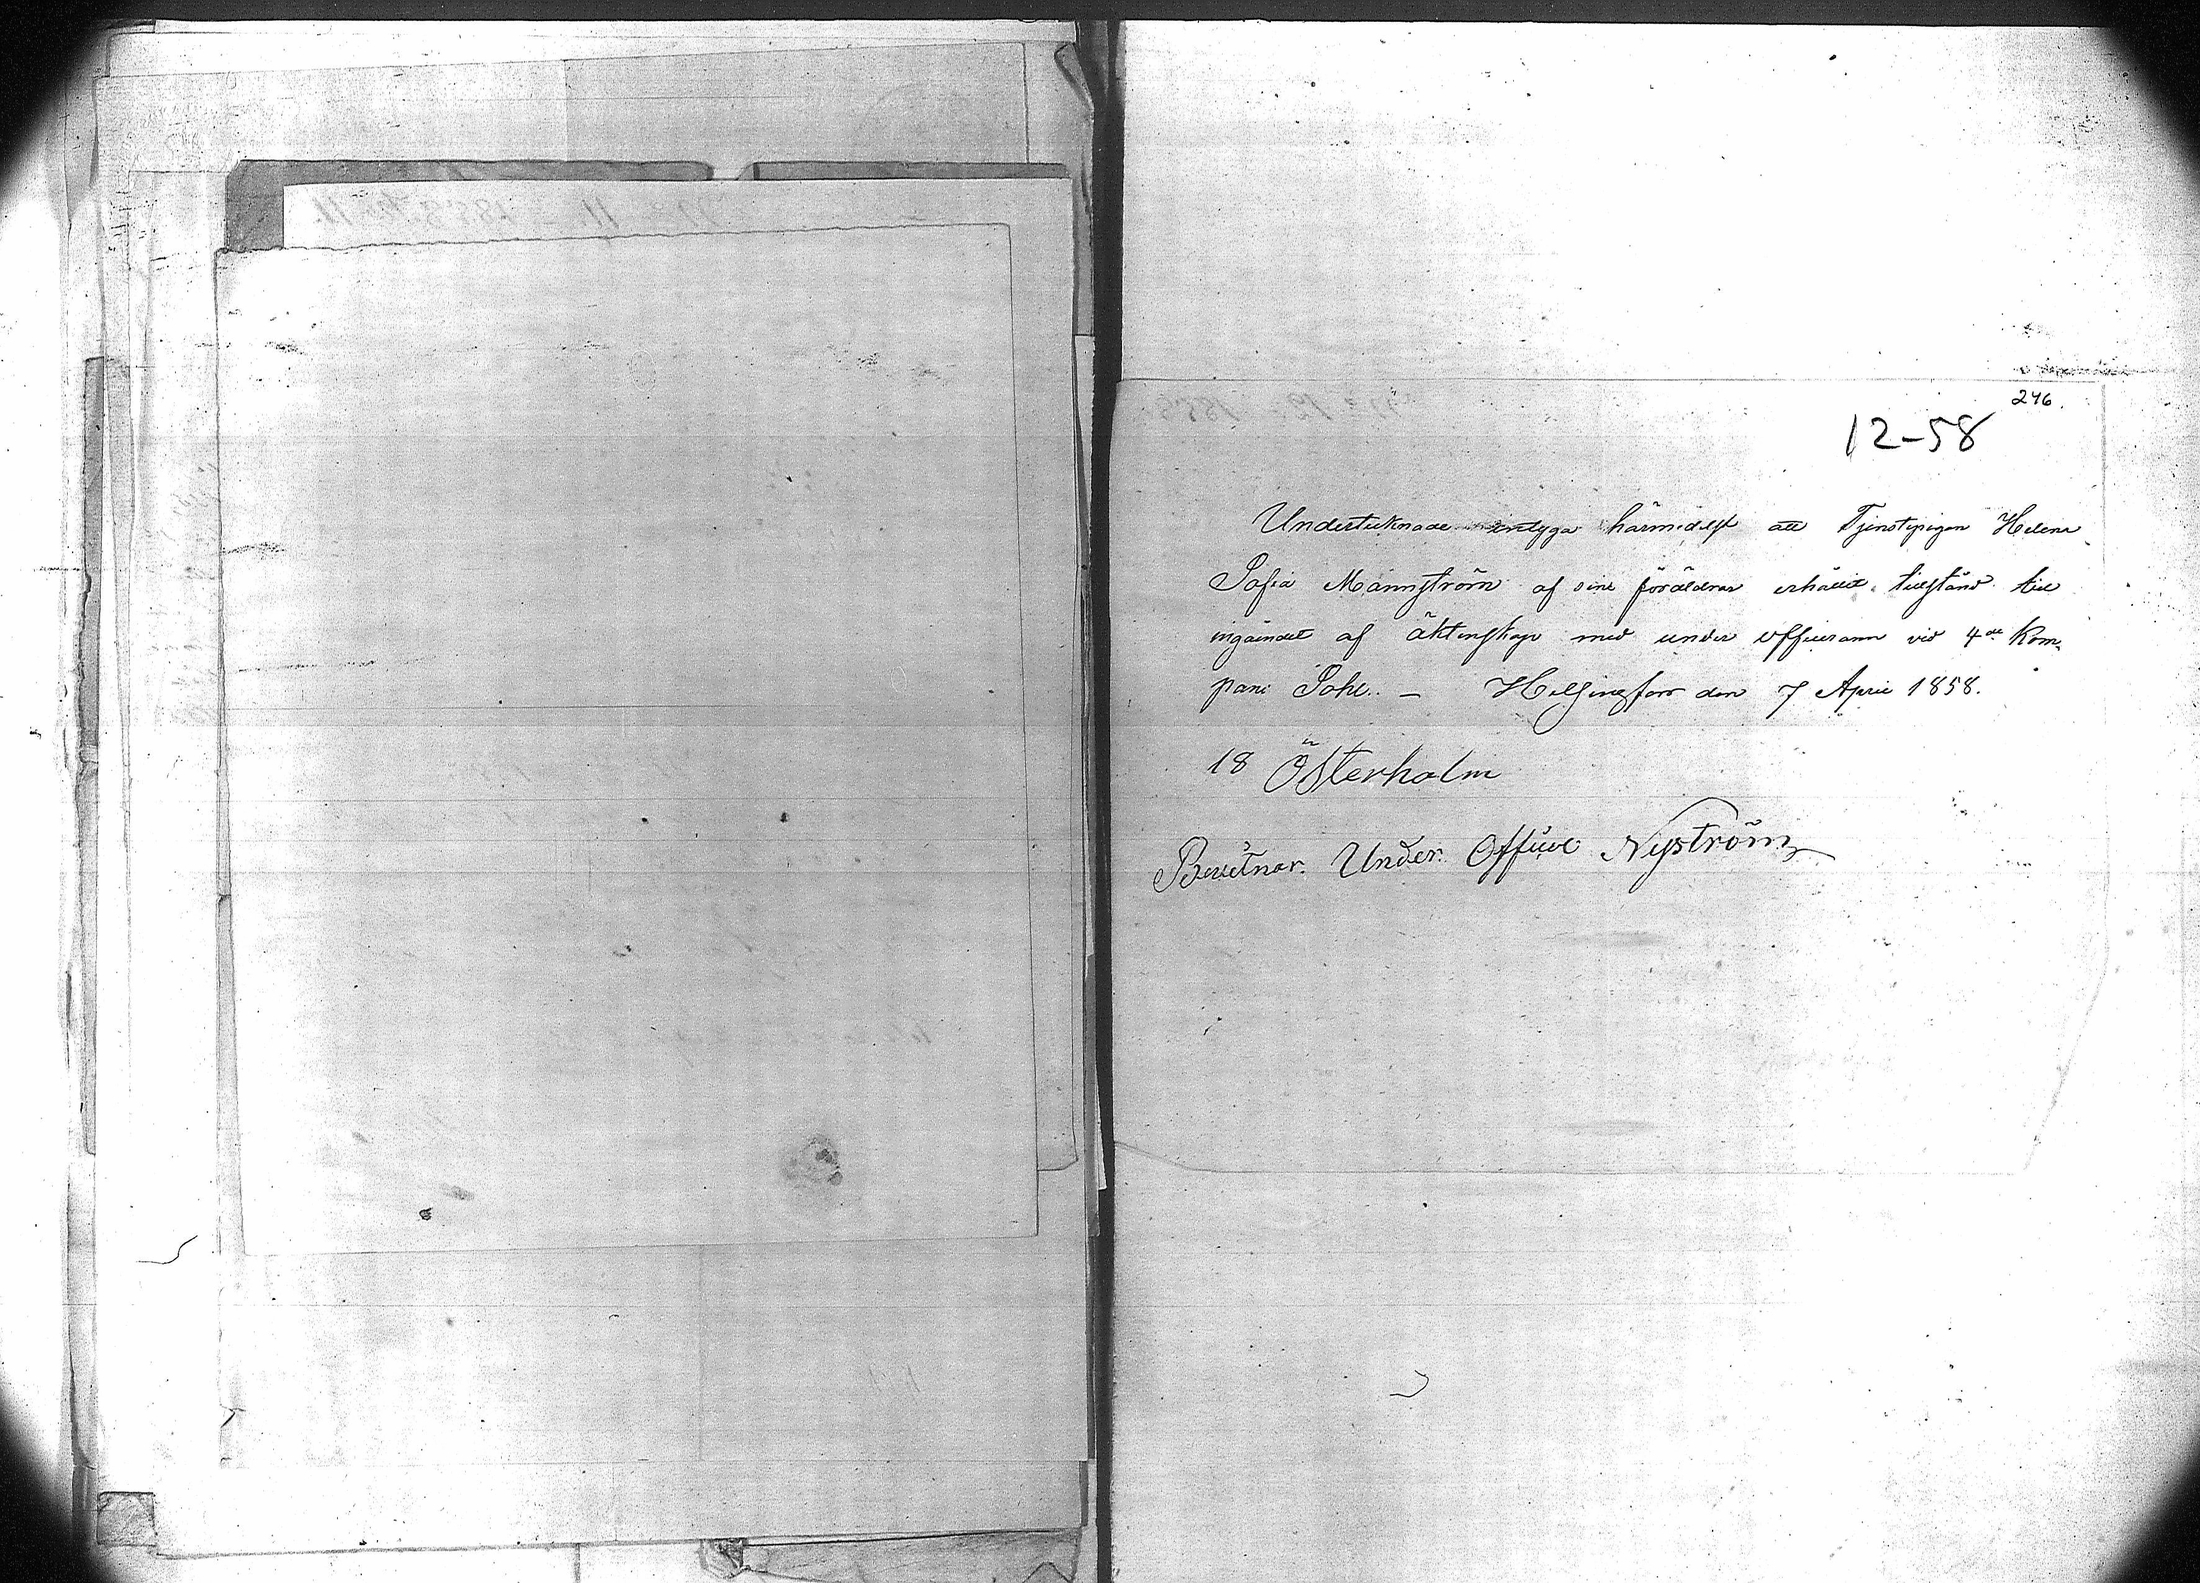 246.
12-58
Undertecknade intyga härmedelst att Tjenstepigan Helena
Sofia Mannström af sina föräldrar erhållit tillstånd till
ingåendet af äktenskap med under officeraren vid 4de Kom-
pani Pohl. — Helsingfors den 7 April 1858.
18 Österholm
Under Officer Nyström